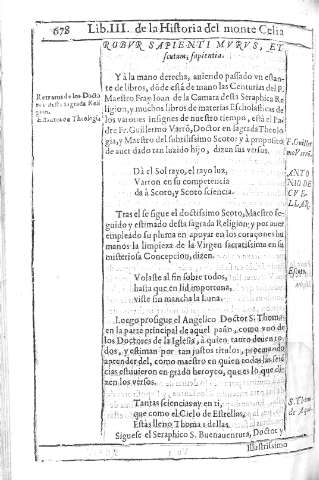 678 Lib. III. de la Historia del monte Celia
ROBUR SAPIENTI MVRVS, ET
scutum, sapientia.
Y à la mano derecha, auiendo passado vn estan-
te de libros, dóde está de mano las Centurias del P.
Retratos de los Docto
res desta sagrada Reli
gion.
Maestro Fray Ioan de la Camara desta Seraphica Re
ligion, y muchos libros de materias Escholasticas de
los varones insignes de nuestro tiempo, está el Pa-
Escritores Theologia
dre Fr. Guillermo Varró, Doctor en sagrada Theolo
gia, y Maestro del subtilissimo Scoto: y à proposito
F. Guiller
de auer dado tan luzido hijo, dizen sus versos.
mo Varró.
Dà el Sol rayo, el rayo luz,
ANTO
Varron en su competencia
NIO DE
da à Scoto, y Scoto sciencia.
CVE
LLAR
Tras el se sigue el doctissimo Scoto, Maestro se-
guido y estimado desta sagrada Religion: y por auer
empleado su pluma en apoyar en los coraçones hu
manos la limpieza de la Virgen sacratissima en su
misteriosa Concepcion, dizen.
Volaste al fin sobre todos,
hasta que en lid importuna,
viste sin mancha la Luna.
Luego prosigue el Angelico Doctor S. Thomas
en la parte principal de aquel paño, como vno de
los Doctores de la Iglesia, à quien tanto deuen to-
dos, y estiman por tan justos titulos, procurando
aprender del, como maestro en quien todas las sciē
cias estuuieron en grado heroyco, que es lo que di-
zen los versos.
Tantas sciencias ay en ti,
S. Thom
que como el Cielo de Estrellas,
de Aqui
Estàs lleno Thomas dellas.
Siguese el Seraphico S. Buenauentura, Doctor y
Illustrissimo